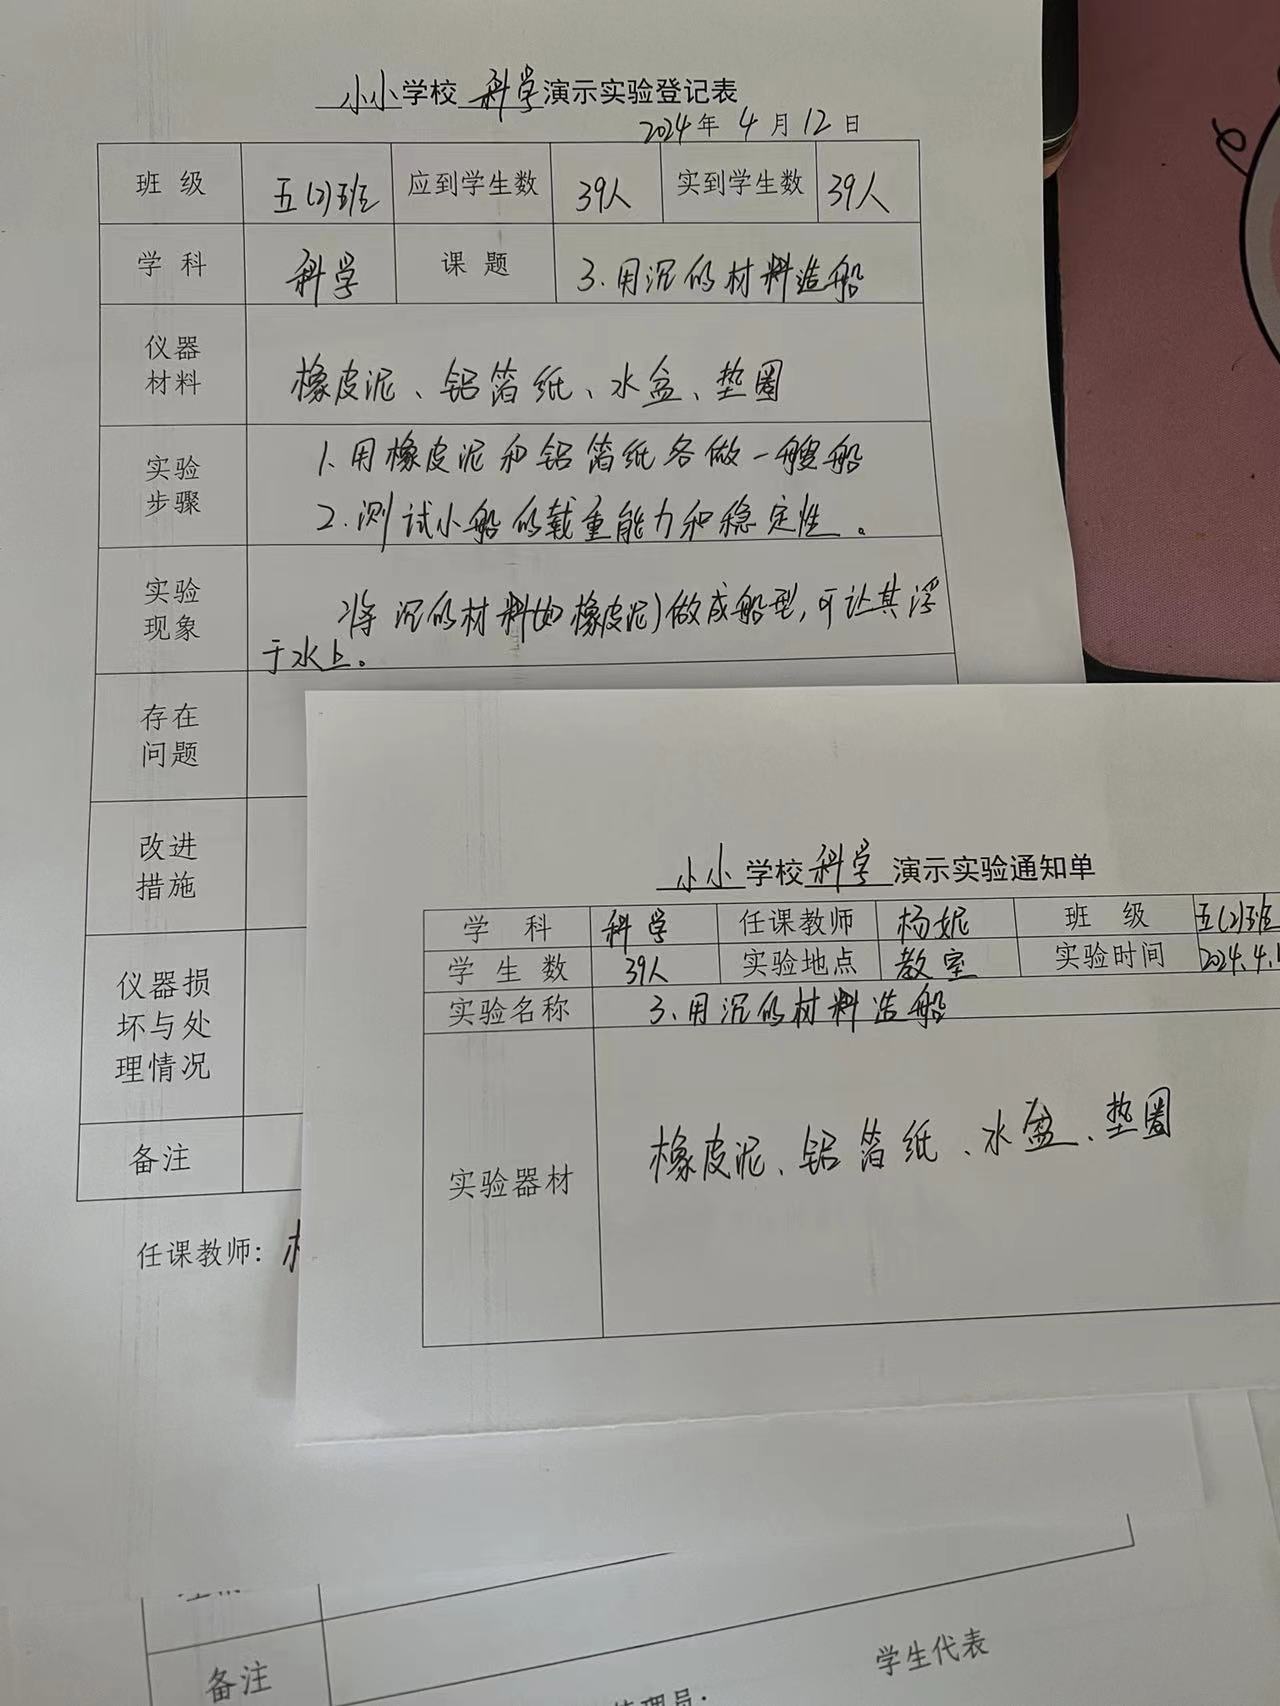 小小学校 科学演示实验登记表
2024年 4 月 12 日
班 级 五(2)班 应到学生数 39人 实到学生数 39人
学 科 科学 课 题 3.用沉的材料造船
仪器
材料
橡皮泥、铝箔纸、水盆、垫圈
实验
步骤
1.用橡皮泥和铝箔纸各做一艘船
2.测试小船的载重能力和稳定性。
实验
现象
将沉的材料(如橡皮泥)做成船型,可让其浮
于水上。
存在
问题
改进
措施
仪器损
坏与处
理情况
备注
任课教师:
小小学校科学演示实验通知单
学 科 科学 任课教师 杨妮 班 级 五(2)班
学 生 数 39人 实验地点 教室 实验时间 2024.4.1
实验名称 3.用沉的材料造船
实验器材 橡皮泥、铝箔纸、水盆、垫圈
备注
学生代表
管理员: